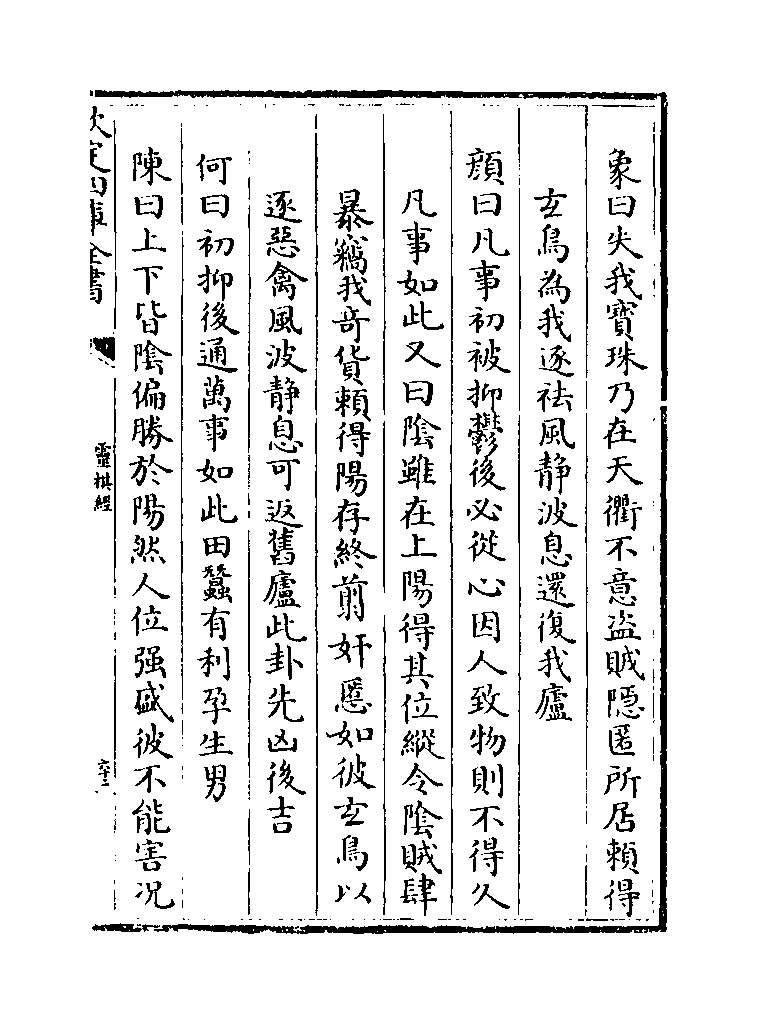 象曰失我寶珠乃在天衢不意盗賊隠匿所居賴得
玄鳥為我逐祛風静波息還復我廬
顔曰凡事初被抑鬱後必從心因人致物則不得久
凡事如此又曰陰雖在上陽得其位縱令陰賊肆
暴竊我竒貨賴得陽存終翦奸慝如彼玄鳥以
逐惡禽風波静息可返舊廬此卦先凶後吉
何曰初抑後通萬事如此田蠶有利孕生男
陳曰上下皆陰偏勝於陽然人位强盛彼不能害况
欽定四庫全書
靈棋經
六十二